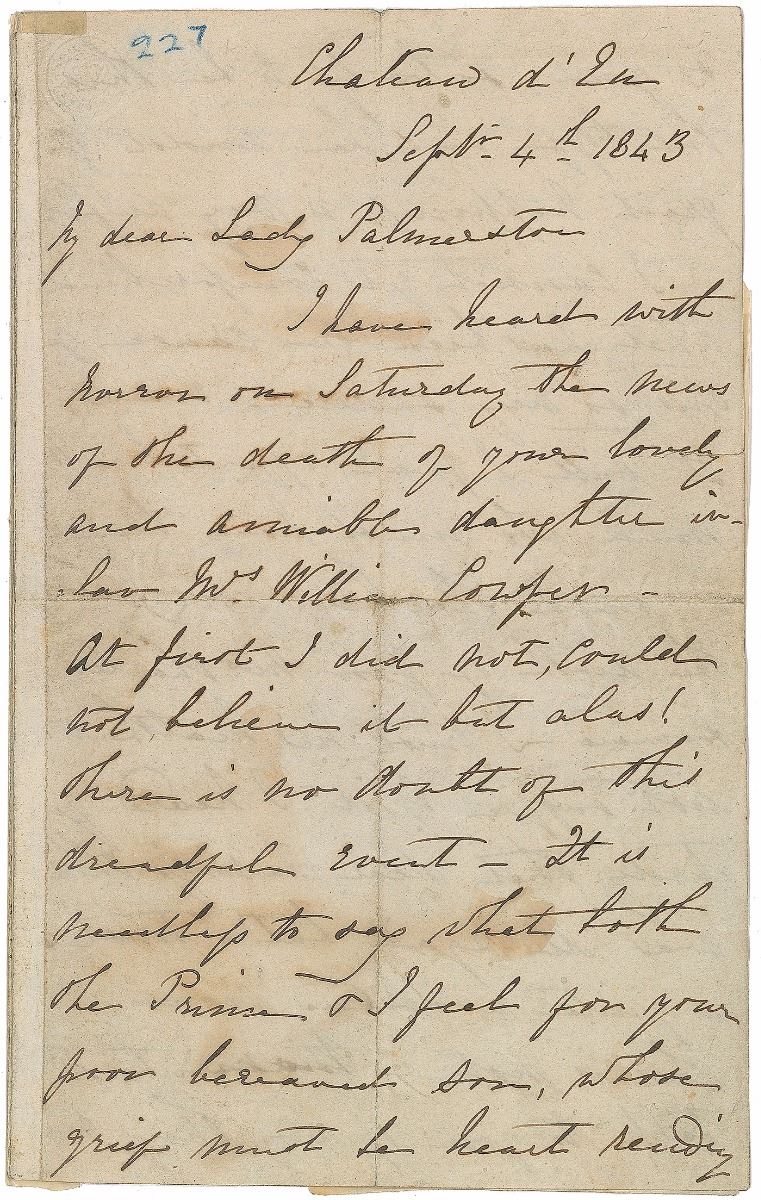 227
Chateau d'Eu
Septbr 4th 1843
My dear Lady Palmerston
I have heard with
horror on Saturday the news
of the death of your lovely
and amiable daughter in-
-law Mrs. William Cowper -
At first I did not, could
not believe it but alas!
there is no doubt of this
dreadful event - It is
needless to say what both
the Prince & I feel for your
poor bereaved son, whose
grief must be heart rending